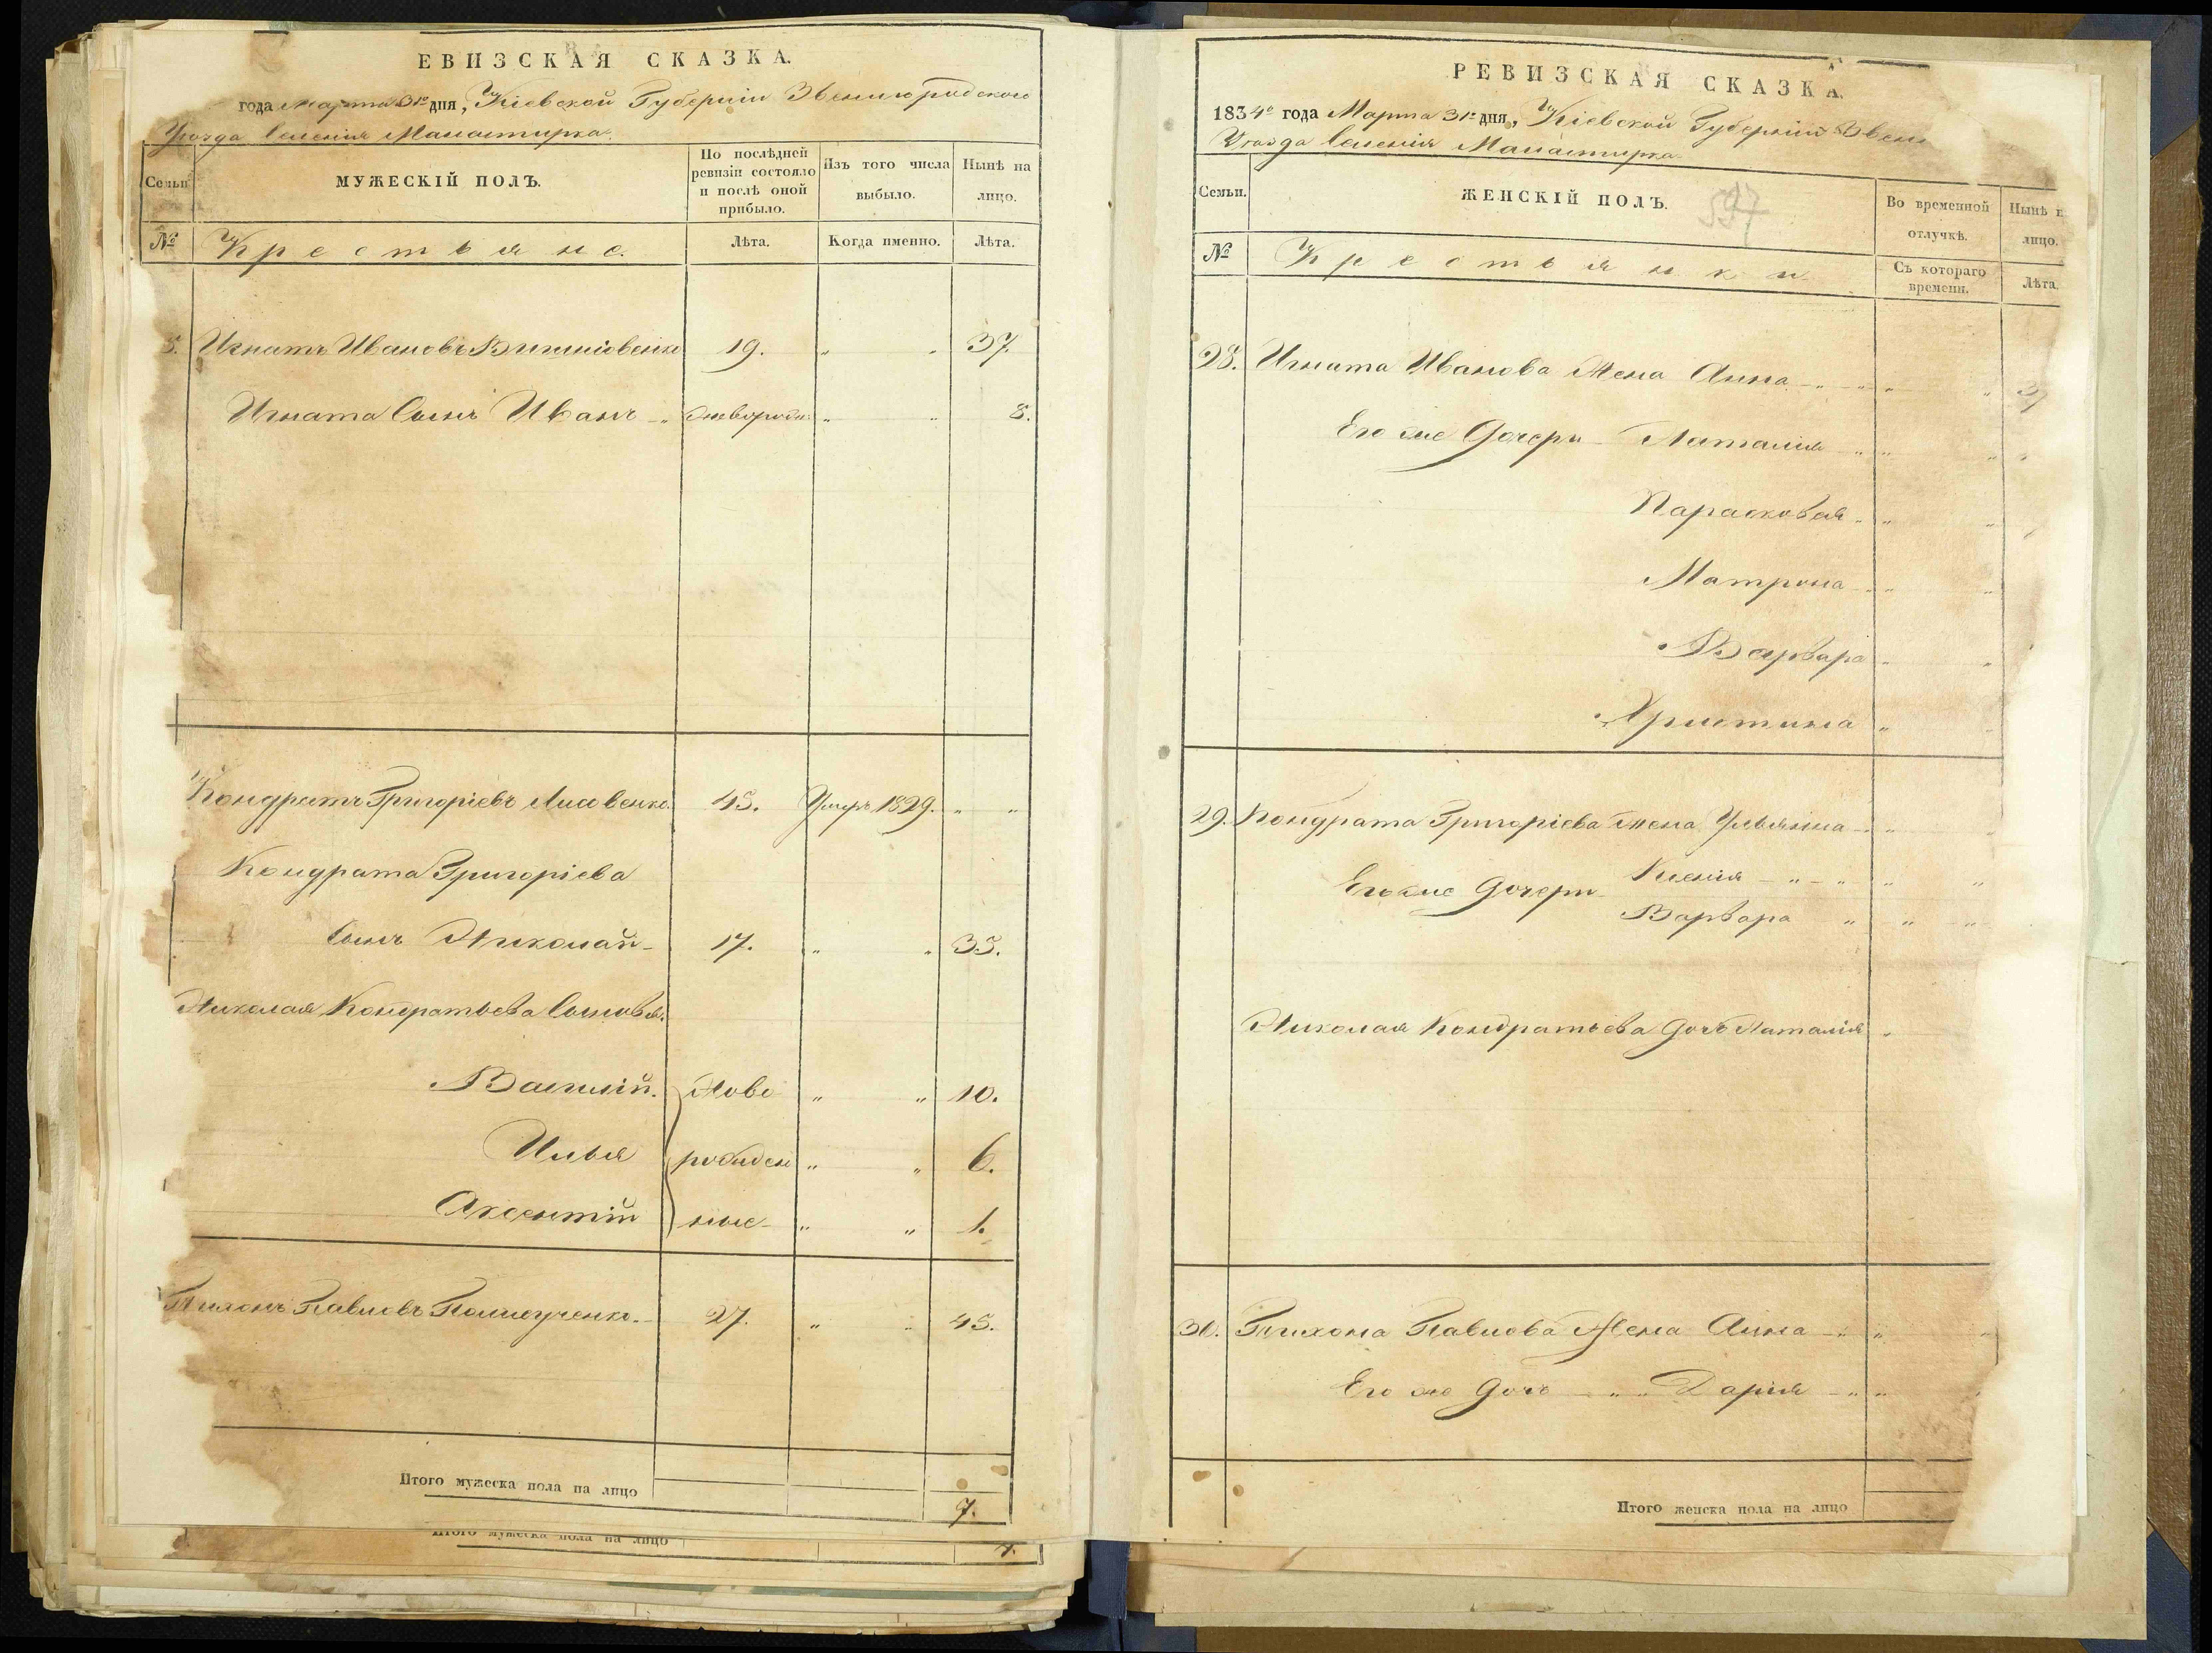 ЕВИЗСКАЯ СКАЗКА.
года Марта 31го дня, Кіевской Губерніи Звенигородского
Уезда Селенія Манастирка.
Семьи
МУЖЕСКІЙ ПОЛЪ.
По послѣдней ревизіи состояло и послѣ оной прибыло.
Изъ того числа выбыло.
Нынѣ на лицо.
№
Крестьяне.
Лѣта.
Когда именно.
Лѣта.
Игнатъ Ивановъ 19. " " 37.
Игната Сынъ Иванъ " " " 8.
Кондратъ Григоріевъ Лисовенко. 45. Умеръ 1829. " "
Кондрата Григоріева
Сынъ Николай 17. " " 35.
Николая Кондратьева Сыновья.
Василій. Ново " " 10.
Илья рожден " " 6.
Аксентій ные " " 1.
Тихонъ Павловъ 27. " " 45.
Итого мужеска пола на лицо 7.
Итого мужеска пола на лицо
РЕВИЗСКАЯ СКАЗКА.
1834го года Марта 31го дня, Кіевской Губерніи Звени
Уезда Селенія Манастирка
Семьи.
ЖЕНСКІЙ ПОЛЪ.
597
Во временной отлучкѣ.
Нынѣ н лицо.
№
Крестьянки
Съ котораго времени.
Лѣта.
28. Игната Иванова Жена Анна " "
Его же Дочери Наталия " "
Парасковея " "
Матрона " "
Варвара " "
Христина "
29. Кондрата Григоріева жена Ульяна "
Его же Дочери Ксенія " "
Варвара " " "
Николая Кондратьева Дочь Наталія "
30. Тихона Павлова Жена Анна " "
Его же Дочь " " Дарія " "
Итого женска пола на лицо